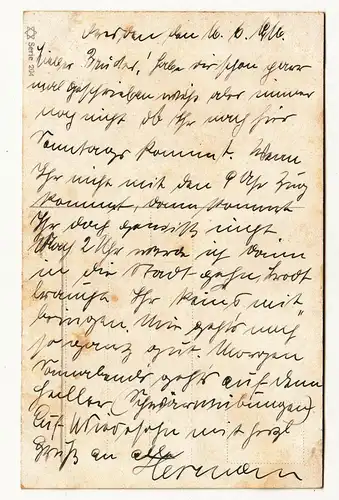 Serie 204
Dresden den 16. 6. 1916.
Lieber Bruder! habe dir schon paar
mal geschrieben weiß aber immer
noch nicht ob Ihr nach hier
Sonntags kommt. Wenn
Ihr nicht mit den 9 Uhr Zug
kommt, dann kommt
Ihr doch gewiß nicht
Nach 2 Uhr werde ich dann
in die Stadt gehn, Brodt
braucht Ihr keins mit
bringen. Mir gehts noch
so ganz gut. Morgen
Sonnabends gehts auf dem
Heller (Schwärmübungen)
Auf Wiedersehn mit herzl
Gruß an alle
Hermann